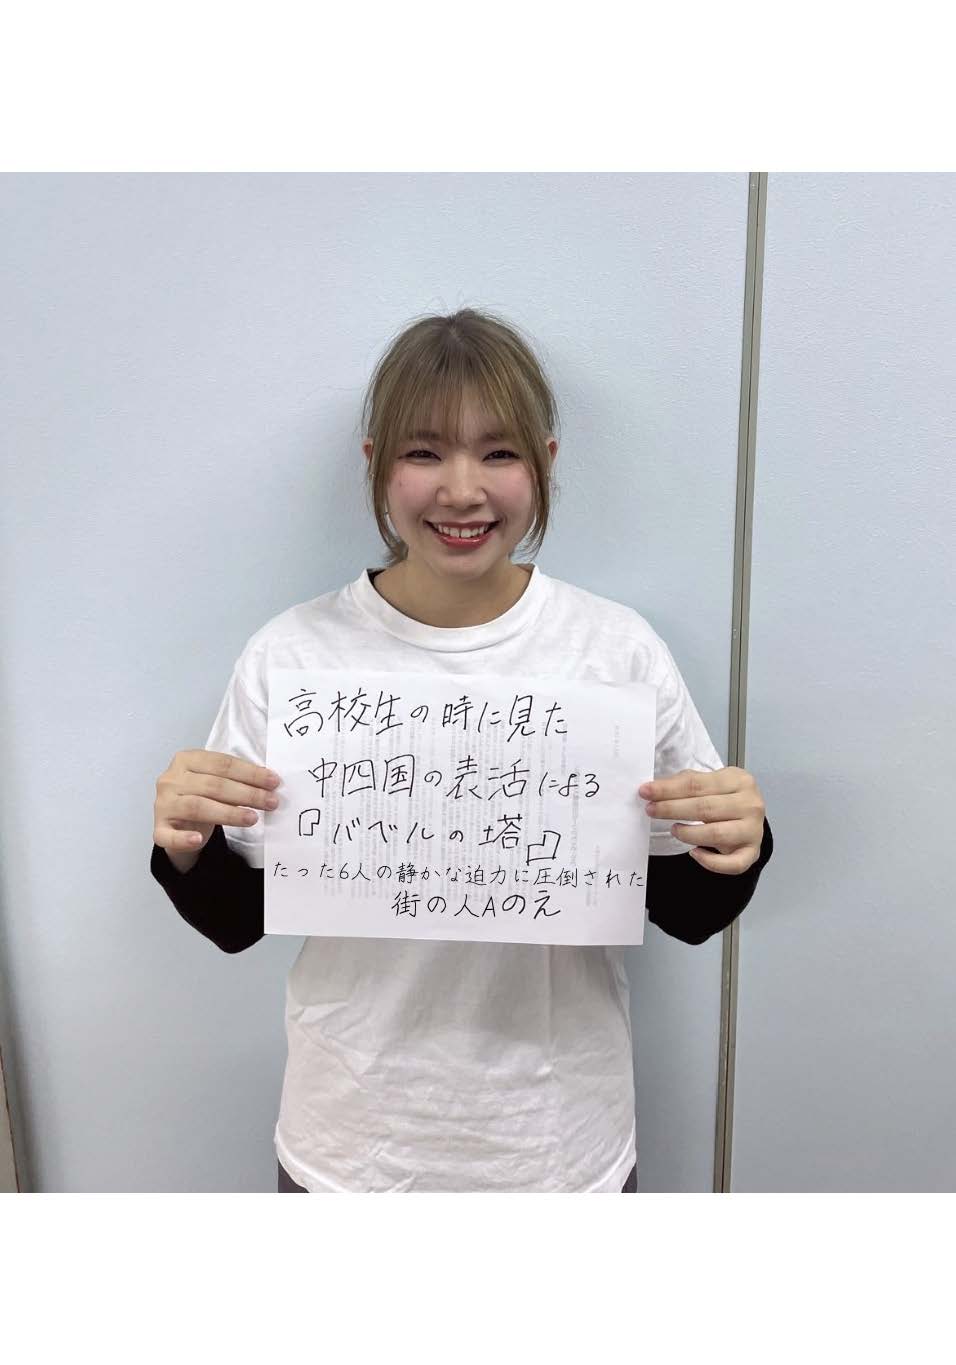 高校生の時に見た
中四国の表活による
『バベルの塔』
たった6人の静かな迫力に圧倒された
街の人Aのえ